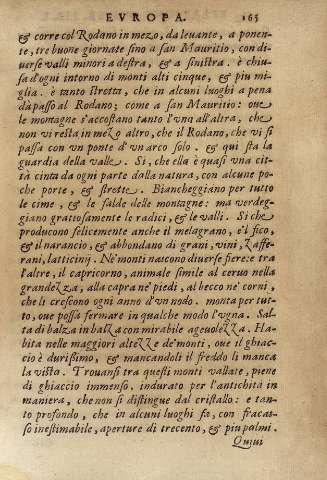 EVROPA. 165
& corre col Rodano in mezo, da leuante, a ponen-
te, tre buone giornate sino a san Mauritio, con di-
uerse valli minori a destra, & a sinistra. è chiu-
sa d'ogni intorno di monti alti cinque, & piu mi-
glia. è tanto strotta, che in alcuni luoghi a pena
dà passo al Rodano; come a san Mauritio: oue
le montagne s'accostano tanto l'vna all'altra, che
non vi resta in mezo altro, che il Rodano, che vi si
passa con vn ponte d'vn arco solo. & qui sta la
guardia della valle. Sì, che ella è quasi vna cit-
tà cinta da ogni parte dalla natura, con alcune po-
che porte, & strotte. Biancheggiano per tutto
le cime, & le falde delle montagne: ma verdeg-
giano gratiosamente le radici, & le valli. Si che
producono felicemente anche il melagrano, e'l fico,
& il narancio, & abbondano di grani, vini, zaffe-
rani, latticinij. Ne' monti nascono diuerse fiere: tra
l'altre, il capricorno, animale simile al ceruo nella
grandezza, alla capra ne' piedi, al becco ne' corni,
che li crescono ogni anno d'vn nodo. monta per tut-
to, oue possa fermare in qualche modo l'vgna. Sal-
ta di balza in balza con mirabile ageuolezza. Ha-
bita nelle maggiori altezze de' monti, oue il ghiac-
cio è durissimo, & mancandoli il freddo li manca
la vista. Trouansi tra questi monti vallate, piene
di ghiaccio immenso. indurato per l'antichità in
maniera, che non si distingue dal cristallo: e tan-
to profondo, che in alcuni luoghi fa, con fracas-
so inestimabile, aperture di trecento, & piu palmi.
Quiui